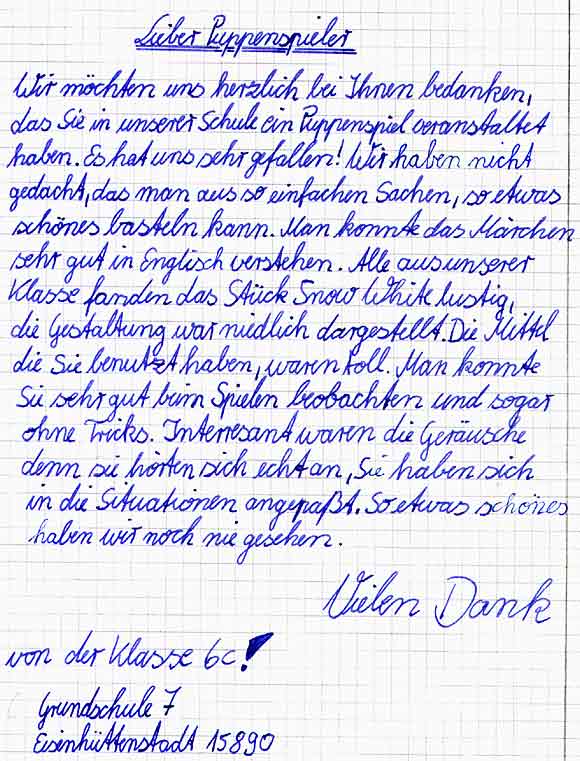 Lieber Puppenspieler
Wir möchten uns herzlich bei Ihnen bedanken,
das Sie in unserer Schule ein Puppenspiel veranstaltet
haben. Es hat uns sehr gefallen! Wir haben nicht
gedacht, das man aus so einfachen Sachen, so etwas
schönes basteln kann. Man konnte das Märchen
sehr gut in Englisch verstehen. Alle aus unserer
Klasse fanden das Stück Snow White lustig,
die Gestaltung war niedlich dargestellt. Die Mittel
die Sie benutzt haben, waren toll. Man konnte
Sie sehr gut beim Spielen beobachten und sogar
ohne Tricks. Interresant waren die Geräusche
denn sie hörten sich echt an, Sie haben sich
in die Situationen angepaßt. So etwas schönes
haben wir noch nie gesehen.
Vielen Dank
von der Klasse 6c!
Grundschule 7
Eisenhüttenstadt 15890